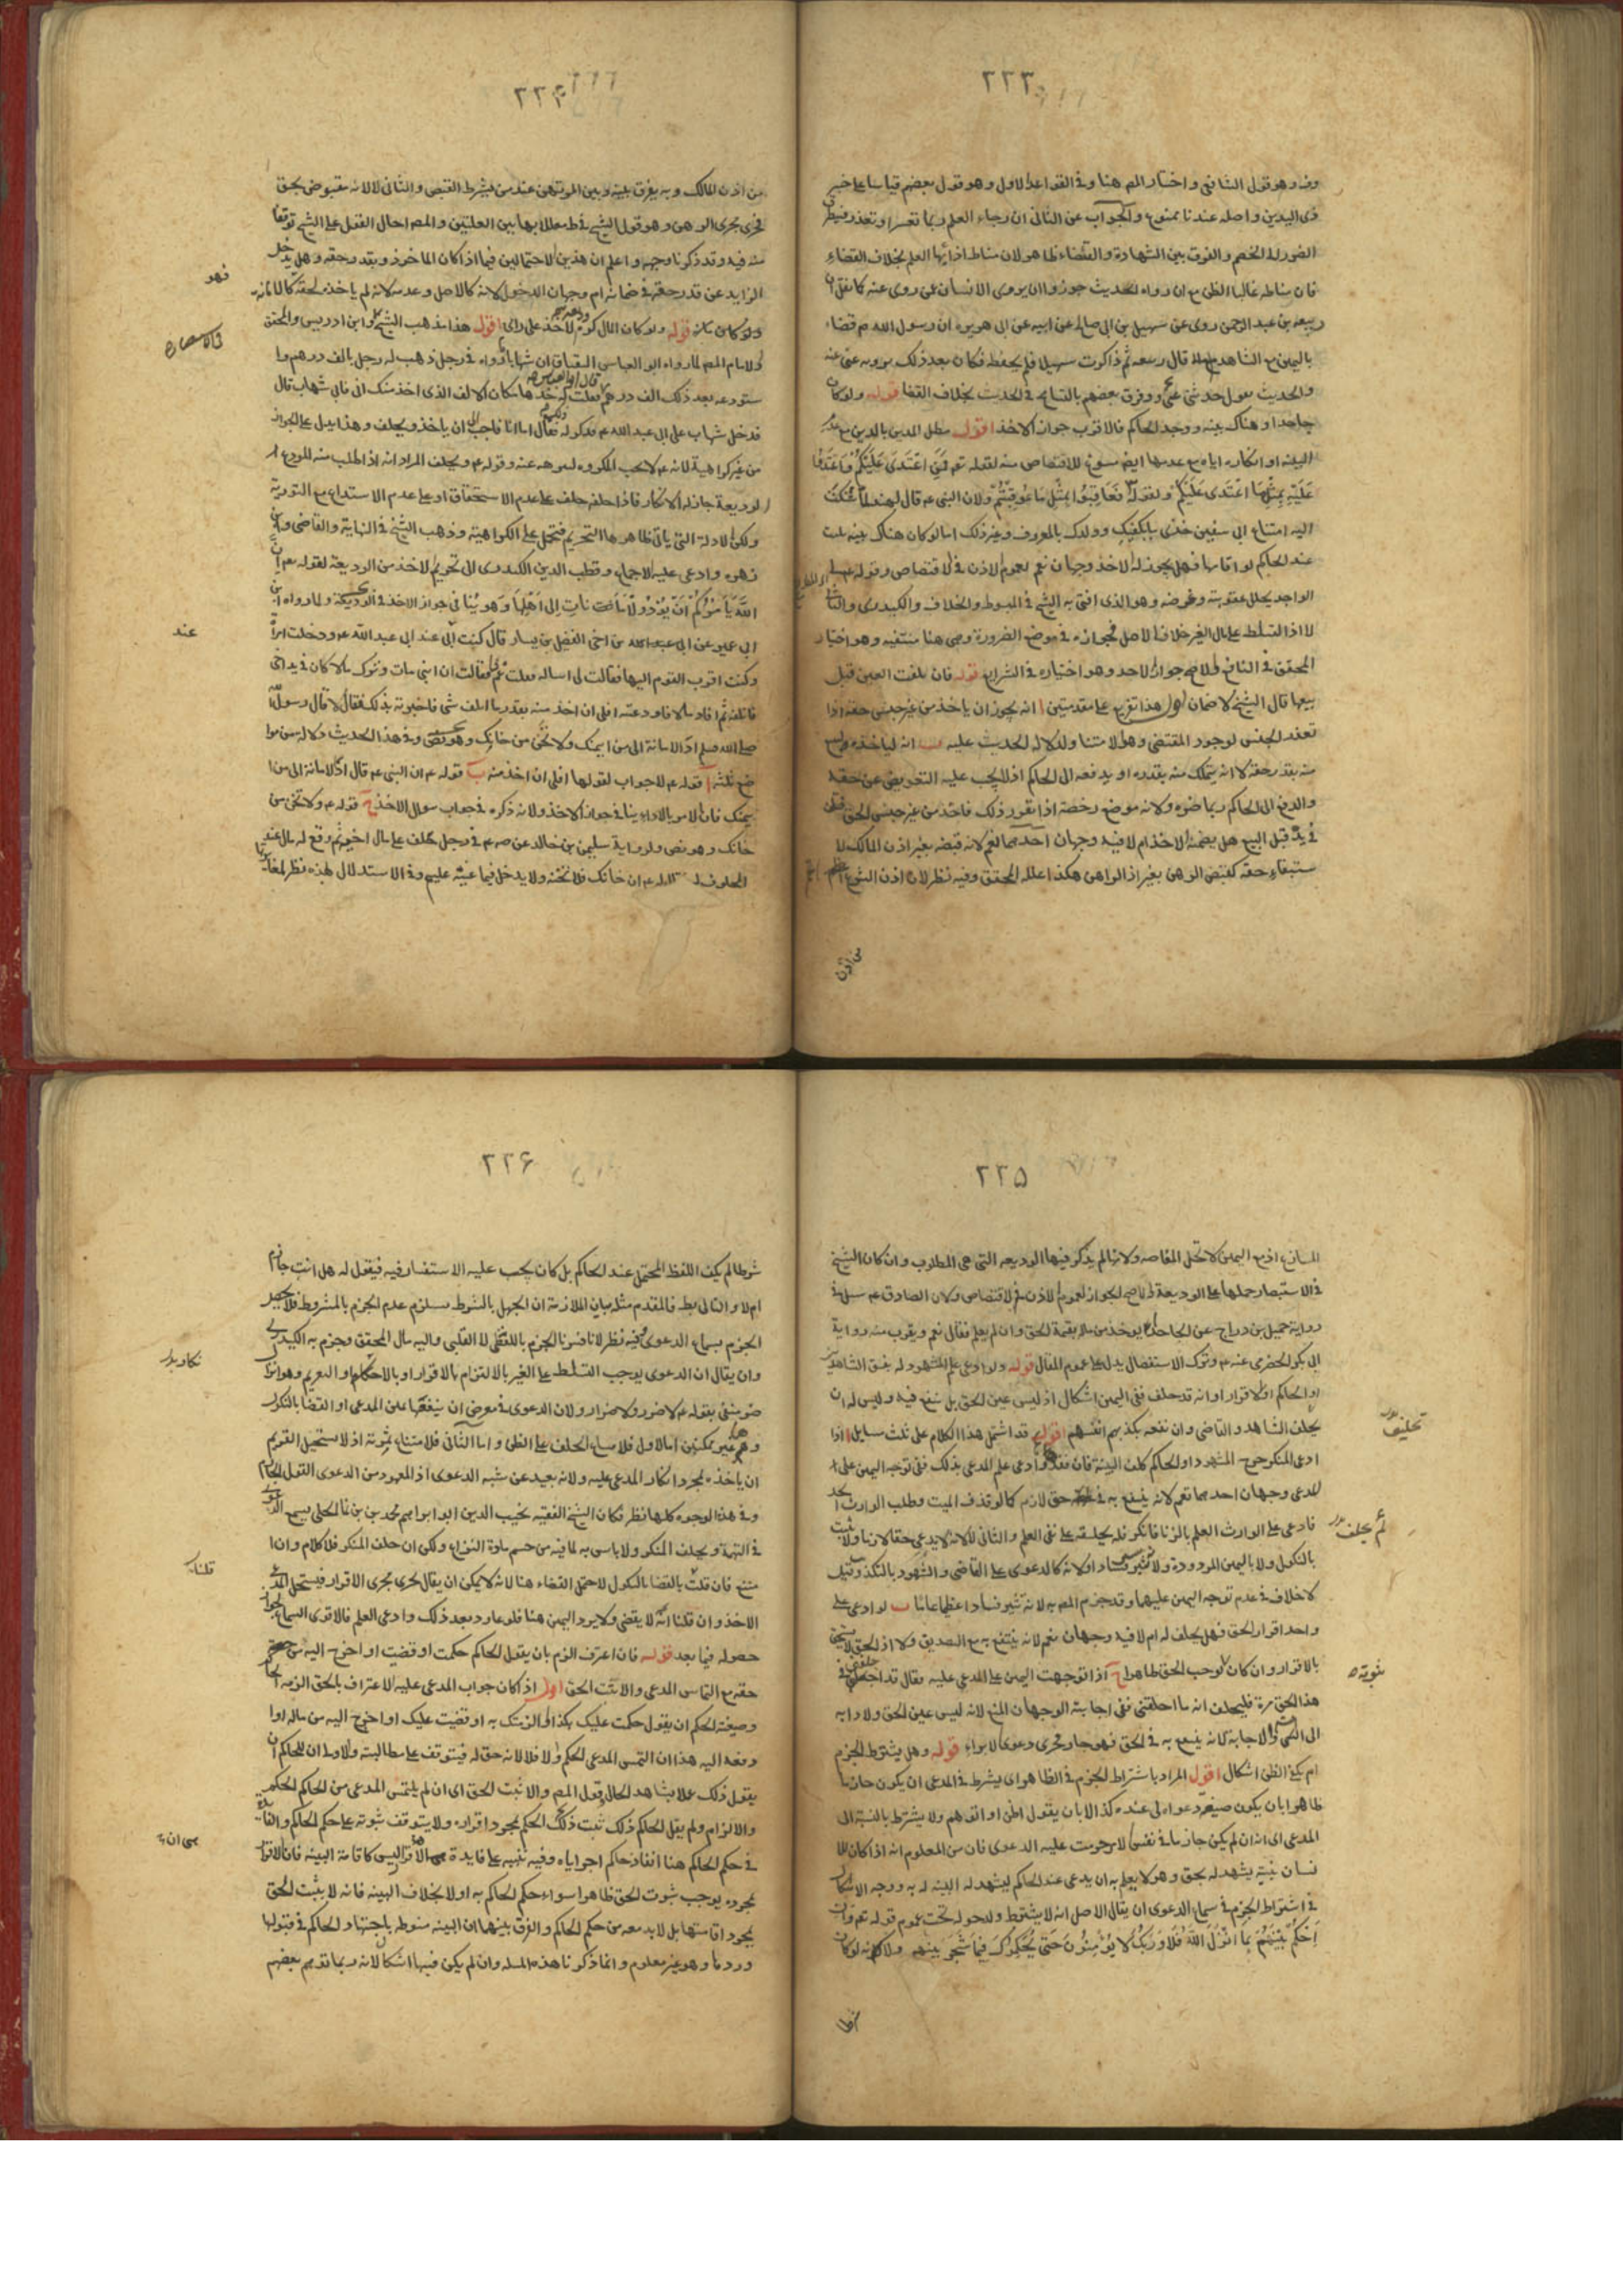 ٢٢٣
وفـ وهو قول الشافعي واختار المصـ هنا وفي القواعد الاول وهو قول بعضهم قياسا على خبر
ذي اليدين واصله عندنا ممنوع والجواب عن الثاني ان رجاء العلم ربما تعسر او تعذر
الضرر له الخصم والفرق بين الشهادة والقضاء ظاهر لان مناط اذائها العلم بخلاف القضاء
فان مناطه غالبا الظن مع ان رواه الحديث جوزوا ان يروى الانسان عن روى عنه كما نقل ان
ربيعه بن عبد الرحمن روى عن سهيل بن ابى صالح عن ابيه عن ابى هريره ان رسول الله قضاء
باليمين مع الشاهد قال ربيعه ثم ذاكرت سهيلا فلم يحفظه فكان بعد ذلك يرويه عنى عنه
والحديث يقول حدثنى عنى وفرق بعضهم بالتسامح في الحديث بخلاف القضا قوله ولو كان
جاحدا وهناك بينه ووجد الحاكم فالاقرب جواز الاخذ اقول مطل المدين بالدين مع
البينه او انكاره اياه مع عدمها ايضا مسوغ للاقتصاص منه لقوله تعـ فَمَنِ اعْتَدَى عَلَيْكُمْ فَاعْتَدُوا
عَلَيْهِ بِمِثْلِ مَا اعْتَدَى عَلَيْكُمْ ولقوله فَعَاقِبُوا بِمِثْلِ مَا عُوقِبْتُمْ ولان النبى عـ قال لهند لما شكت
اليه امتناع ابى سفين خذى ما يكفيك وولدك بالمعروف وغير ذلك اما لو كان هناك بينه
عند الحاكم لو اقامها فهل يجوز له الاخذ وجهان نعم لعموم الاذن في الاقتصاص وقوله
الواجد يحلل عقوبته وعرضه وهو الذى افتى به الشيخ في المبسوط والخلاف والكيدرى والثانى
لا اذ التسلط على مال الغير خلاف الاصل فجوازه في موضع الضرورة وهى هنا منتفيه وهو اختيار
المحقق في النافع والاصح جواز الاخذ وهو اختياره في الشرايع قوله فان تلفت العين قبل
بيعها قال الشيخ لا ضمان اقول هذا تفريع على مقدمتين ا انه يجوز ان ياخذ من غير جنس حقه اذا
تعذر الجنس لوجود المقتضى وهو الامتناع ولدلالة الحديث عليه ب انه
منه بقدر حقه لا انه يتملك منه بقدره او يدفعه الى الحاكم اذ لا يجب عليه التعويض عن حقه
والدفع الى الحاكم ربما ضره ولانه موضع رخصة اذا تقرر ذلك فاخذ من غير جنس الحق فتلف
في يده قبل البيع هل يضمنه الاخذ ام لا فيه وجهان احدهما نعم لانه قبضه بغير اذن المالك
ستيفاء حقه كقبض الرهن بغير اذ الراهن هكذا علله المحقق وفيه نظر لان اذن الشرع
من اذن
٢٢۴
من اذن المالك وبه يفرق بينه وبين المرتهن عند من يشرط القبض والثانى لا لانه مقبوض بحق
فجرى مجرى الرهن وهو قول الشيخ في ط معللا بها بين العلتين والمصـ احال القول على الشيخ توقفا
منه فيه وقد ذكرنا وجهه واعلم ان هذين الاحتمالين فيما اذا كان الماخوذ بقدر حقه وهل يدخل
الزايد عن قدر حقه في ضمانه ام وجهان الدخول لانه كالاصل وعدمه لانه لم ياخذه لحقه كالامانه
قوله ولو كان المال وديعة كره الاخذ على راى اقول هذا مذهب الشيخ وابن ادريس والمحقق
والامام المصـ لما رواه ابو العباس البقباق ان شهابا ماراه في رجل ذهب له رجل بالف درهم وا
ستودعه بعد ذلك الف درهم قال ابو العباس فقلت له خذها مكان الالف الذى اخذ منك ابى فابى شهاب قال
فدخل شهاب على ابى عبد الله عـ فذكر له ذلك فقال اما انا فاحب الى ان ياخذ ويحلف وهذا يدل على الجواز
من غير كراهية لانه عـ لا يحب المكروه لنرهه عنه وقوله عـ ويحلف المراد انه اذا طلب منه المودع
الوديعة جاز له الانكار فاذا حلفه حلف على عدم الاستحقاق او على عدم الاستداع مع التورية
ولكن الادلة التى ياتى ظاهرها التحريم فتحمل على الكراهية وذهب الشيخ في النهاية والقاضى وابن
زهره وادعى عليه الاجماع وقطب الدين الكيدرى الى تحريم الاخذ من الوديعة لقوله تعـ ان
اللَّهَ يَأْمُرُكُمْ أَنْ تُؤَدُّوا الْأَمَانَاتِ إِلَى أَهْلِهَا وهو ينافى جواز الاخذ في الوديعة ولما رواه ابن
ابى عمير عن ابى عبد الله عن اخى الفضل بن يسار قال كنت عند ابى عبد الله عـ ودخلت امراة
وكنت اقرب القوم اليها فقالت لى اساله فقلت عم فقالت ان ابنى مات وترك مالا كان في يد اخى
فاتلفه ثم افاد مالا فاودعنيه افلى ان اخذ منه بقدر ما اتلف شئ فاخبرته بذلك فقال لا قال رسول الله
صلى الله عليه وسلم اد الامانة الى من ائتمنك ولا تخن من خانك وهو نص وفي هذا الحديث دلالة من موا
ضع ثلثه ا قوله عـ لا جواب لقولها افلى ان اخذ منه ب قوله عـ ان النبى عـ قال اد الامانة الى من ا
يتمنك فان الامر بالاداء ينافى جواز الاخذ ولانه ذكره في جواب سوال الاخذ ج قوله عـ ولا تخن من
خانك وهو نص ولرواية سليمن بن خالد عن صـ عـ في رجل حلف على مال اخر ثم وقع له مال عند
الحلوف له عـ ان خانك فلا تخنه ولا يدخل فيما عبته عليه وفي الاستدلال بهذه نظر
فهو
عند
٢٢۵
المانع اذ مع اليمين لا تحل المقاصه ولانه لم يذكر فيها الوديعه التى هى المطلوب وان كان الشيخ
في الاستبصار حملها على الوديعة والاصح الجواز لعموم الاذن في الاقتصاص ولان الصادق عـ سئل في
رواية جميل بن دراج عن الجاحد ايوخذ من ماله بقيمة الحق وان لم يعلم فقال نعم ويقرب منه رواية
ابى بكر الحضرمى عنه عـ وترك الاستفصال يدل على عموم المقال قوله ولو ادعى علم المشهود له بفسق الشاهدين
او الحاكم او الاقرار او انه قد حلف ففى اليمين اشكال اذ ليس عين الحق بل ينفع فيه وليس له ان
يحلف الشاهد والقاضى وان نفعه تكذيبهم انفسهم اقول قد اشتمل هذا الكلام على ثلث مسايل ا اذا
ادعى المنكر جرح الشهود او الحاكم كلف البينة فان فقد وادعى علم المدعى بذلك ففى توجه اليمين على ا
لمدعى وجهان احدهما نعم لانه ينتفع به في حق لازم كما لو قذف الميت وطلب الوارث الحد
فادعى على الوارث العلم بالزنا فانكر فله تحليفه على نفى العلم والثانى لا لانه لا يدعى حقا لازما ولا يثبت
بالنكول ولا باليمين المردودة ولانه يثير فسادا ولانه كالدعوى على القاضى والشهود بالكذب وقيل
لا خلاف في عدم توجه اليمين عليهما وقد جزم المصـ به لانه يثير فسادا عظيما عاما ب لو ادعى على
واحد اقرار الحق فهل يحلف له ام لا فيه وجهان نعم لانه ينتفع به مع التصديق ولا اذ الحق لا يستحق
بالاقرار وان كان لوجب الحق ظاهرا ج اذا توجهت اليمين على المدعى عليه فقال قد احلفنى في
هذا الحق مرة فليحلف انه ما احلفنى ففى اجابته الوجهان المنع لانه ليس عين الحق ولادا به
الى التسلسل والاجابة لانه ينتفع به في الحق فهو جار مجرى دعوى الابراء قوله وهل يشترط الجزم
ام يكفى الظن اشكال اقول المراد باشتراط الجزم في الظاهر اى يشرط في المدعى ان يكون جازما
ظاهرا بان يكون صيغه دعواه لى عنده كذا لا بان يقول اظن او اتوهم ولا يشترط بالنسبة الى
المدعى اى انه ان لم يكن جازما في نفس الامر حرمت عليه الدعوى فان من المعلوم انه اذا كان للا
نسان بينة يشهد له بحق وهو لا يعلم به ان يدعى عند الحاكم ليشهد له البينه له به ووجه الاشكال
في اشتراط الجزم في سماع الدعوى ان يقال الاصل انه لا يشترط ولدخوله تحت عموم قوله تعـ وان
احْكُمْ بَيْنَهُمْ بِمَا أَنْزَلَ اللَّهُ فَلَا وَرَبِّكَ لَا يُؤْمِنُونَ حَتَّى يُحَكِّمُوكَ فِيمَا شَجَرَ بَيْنَهُمْ ولانه لو كان
شرطا
تحليف
ثم يحلف
ثبوته
٢٢۶
شرطا لم يكف اللفظ المحتمل عند الحاكم بل كان يجب عليه الاستفسار فيه فيقول له هل انت جازم
ام لا والتالى بط فالمقدم مثله بيان الملازمة ان الجهل بالشرط يستلزم عدم الجزم بالمشروط
الجزم بسماع الدعوى وفيه نظر لانا فسرنا الجزم باللفظى لا القلبى واليه مال المحقق وجزم به الكيدرى
وان يقال ان الدعوى يوجب التسلط على الغير بالالتزام بالاقرار او بالاحكام او التغريم وهو
ضرر منفى بقوله عـ لا ضرر ولا ضرار ولان الدعوى في معرض ان يتعقبها يمين المدعى او القضا بالنكول
وهما غير ممكنين اما الاول فلامتناع الحلف على الظن واما الثانى فلامتناع ثبوته اذ لا يستحيل الغريم
ان ياخذه بمجرد انكار المدعى عليه ولانه بعيد عن شبه الدعوى اذ المعهود من الدعوى القول الجازم
وفى هذا الوجوه كلها نظر فكان الشيخ الفقيه نجيب الدين ابو ابراهيم محمد بن نما الحلى يسمع الدعوى
في التهمة ويحلف المنكر ولا باس به لما فيه من حسم مادة النزاع ولكن ان حلف المنكر فلا كلام وان ا
متنع فان قلنا بالقضا بالنكول لاحتمل القضاء هنا لانه لا يمكن ان يقال يجرى مجرى الاقرار
الاخذ وان قلنا انه لا يقضى ولا يرد اليمين هنا فلو عاود بعد ذلك وادعى العلم فالاقوى السماع لجواز
حصوله فيما بعد قوله فان اعترف الزم بان يقول الحاكم حكمت او قضيت او اخرج اليه من
حقه مع التماس المدعى والا ثبت الحق اقول اذ كان جواب المدعى عليه الاعتراف بالحق الزمه الحاكم
وصيغة الحكم ان يقول حكمت عليك بكذا او الزمتك به او قضيت عليك او اخرج اليه من ماله او ا
دفعه اليه هذا ان التمس المدعى الحكم والا فلا لانه حق له فيتوقف على مطالبته والاولى ان للحاكم ان
يقول ذلك عملا بشاهد الحال وقول المصـ والا ثبت الحق اى ان لم يلتمس المدعى من الحاكم الحكم
والالزام ولم يقل الحاكم ذلك ثبت ذلك الحكم بمجرد اقراره ولا يتوقف ثبوته على حكم الحاكم
في حكم الحاكم هنا انفاذ حاكم اخر اياه وفيه تنبيه على فايدة هى ان الاقرار ليس كاقامة البينه فان الاقرار
بمجرده يوجب ثبوت الحق ظاهرا سواء حكم الحاكم به او لا بخلاف البينه فانه لا يثبت الحق
بمجرد اقامتها بل لا بد معه من حكم الحاكم والفرق بينهما ان البينه منوطه باجتهاد الحاكم في قبولها
وردها وهو غير معلوم وانما ذكرنا هذه المسئله وان لم يكن فيها اشكالا لانه ربما توهم بعضهم
قلنا
هى ان